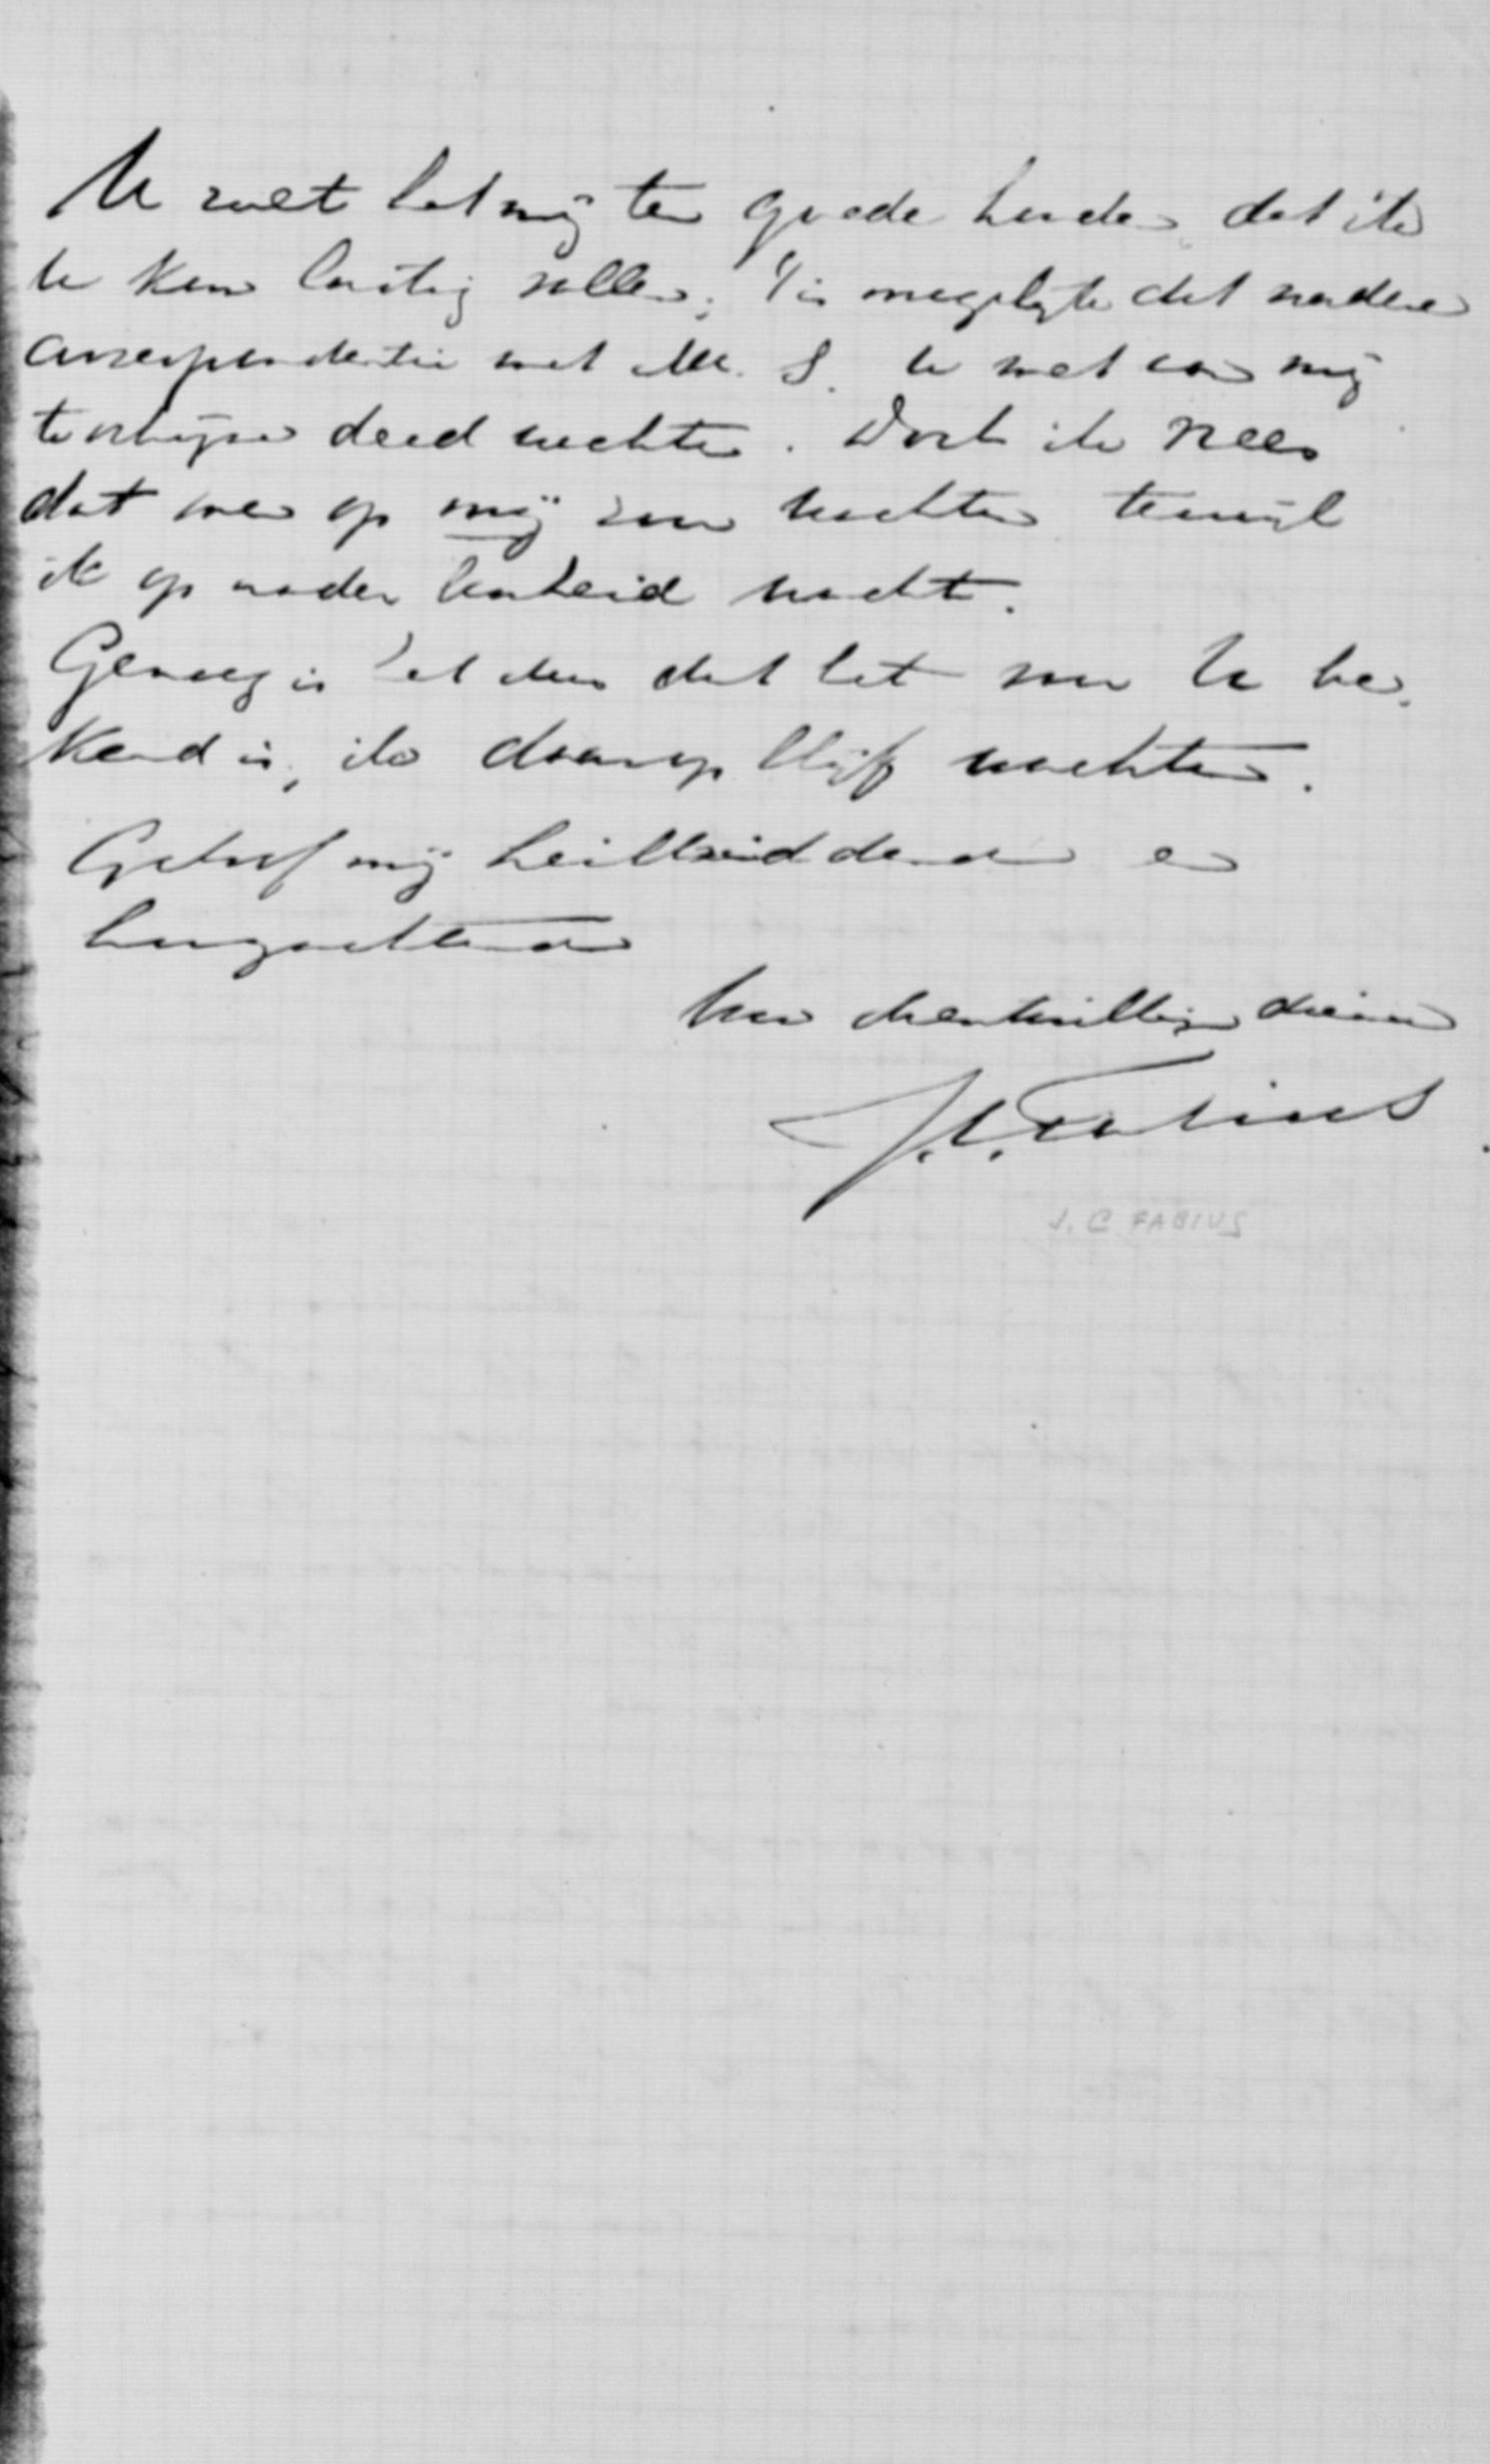 U zult het mij ten goede houden dat ik
U kom lastig vallen. 't is mogelijk dat nadere
correspondentie met M. S. U met aan mij
te schrijven deed wachten. Doch ik vrees
dat men op mij zou wachten terwijl
ik op nader bescheid wacht.
Genoeg is het dus dat het nu U be-
kend is, ik daarop blijf wachten.
Geloof mij heilbiddend en
hoogachtend
Uw dienstwillige dienaar
J.C. Fabius
J. C FABIUS